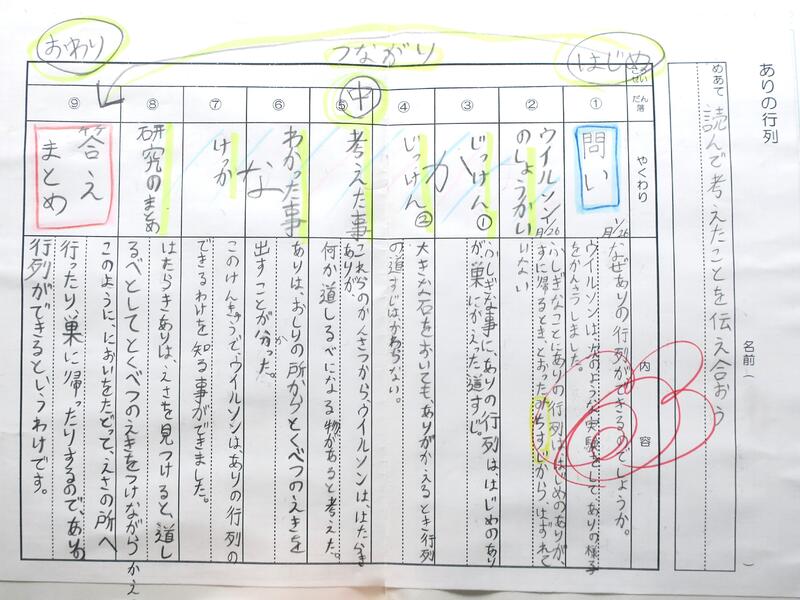 ありの行列
名前（　　）
めあて　読んで考えたことを伝え合おう
はじめ
つながり
おわり
だん落
やくわり
内容
①
問い
1/26
なぜありの行列ができるのでしょうか。
②
ウイルソン
のしょうかい
1月/26
ウイルソンは、次のような実験をして、ありの様子
をかんさつしました。
ふしぎなことにありの行列は、はじめのありが、
すに帰るとき、とおったみちすじから、はずれて
いない
③
じっけん①
ふしぎな事に、ありの行列は、はじめのあり
が巣にかえった道すじ。
か
④
じっけん②
大きな石をおいても、ありがかえるとき行列
の道すじはかわらない。
中
⑤
考えた事
これらのかんさつから、ウイルソンは、はたらき
ありが、
何か道しるべになる物があると考えた。
⑥
わかった事
ありは、おしりの所からとくべつのえきを
出すことが分った。
か
な
⑦
けっか
このけんきゅうで、ウイルソンは、ありの行列の
できるわけを知る事ができました。
⑧
研究のまとめ
はたらきありは、えさを見つけると、道し
るべとしてとくべつのえきをつけながらかえ
⑨
答え
まとめ
このように、においをたどって、えさの所へ
行ったり巣に帰ったりするので、ありの
行列ができるというわけです。